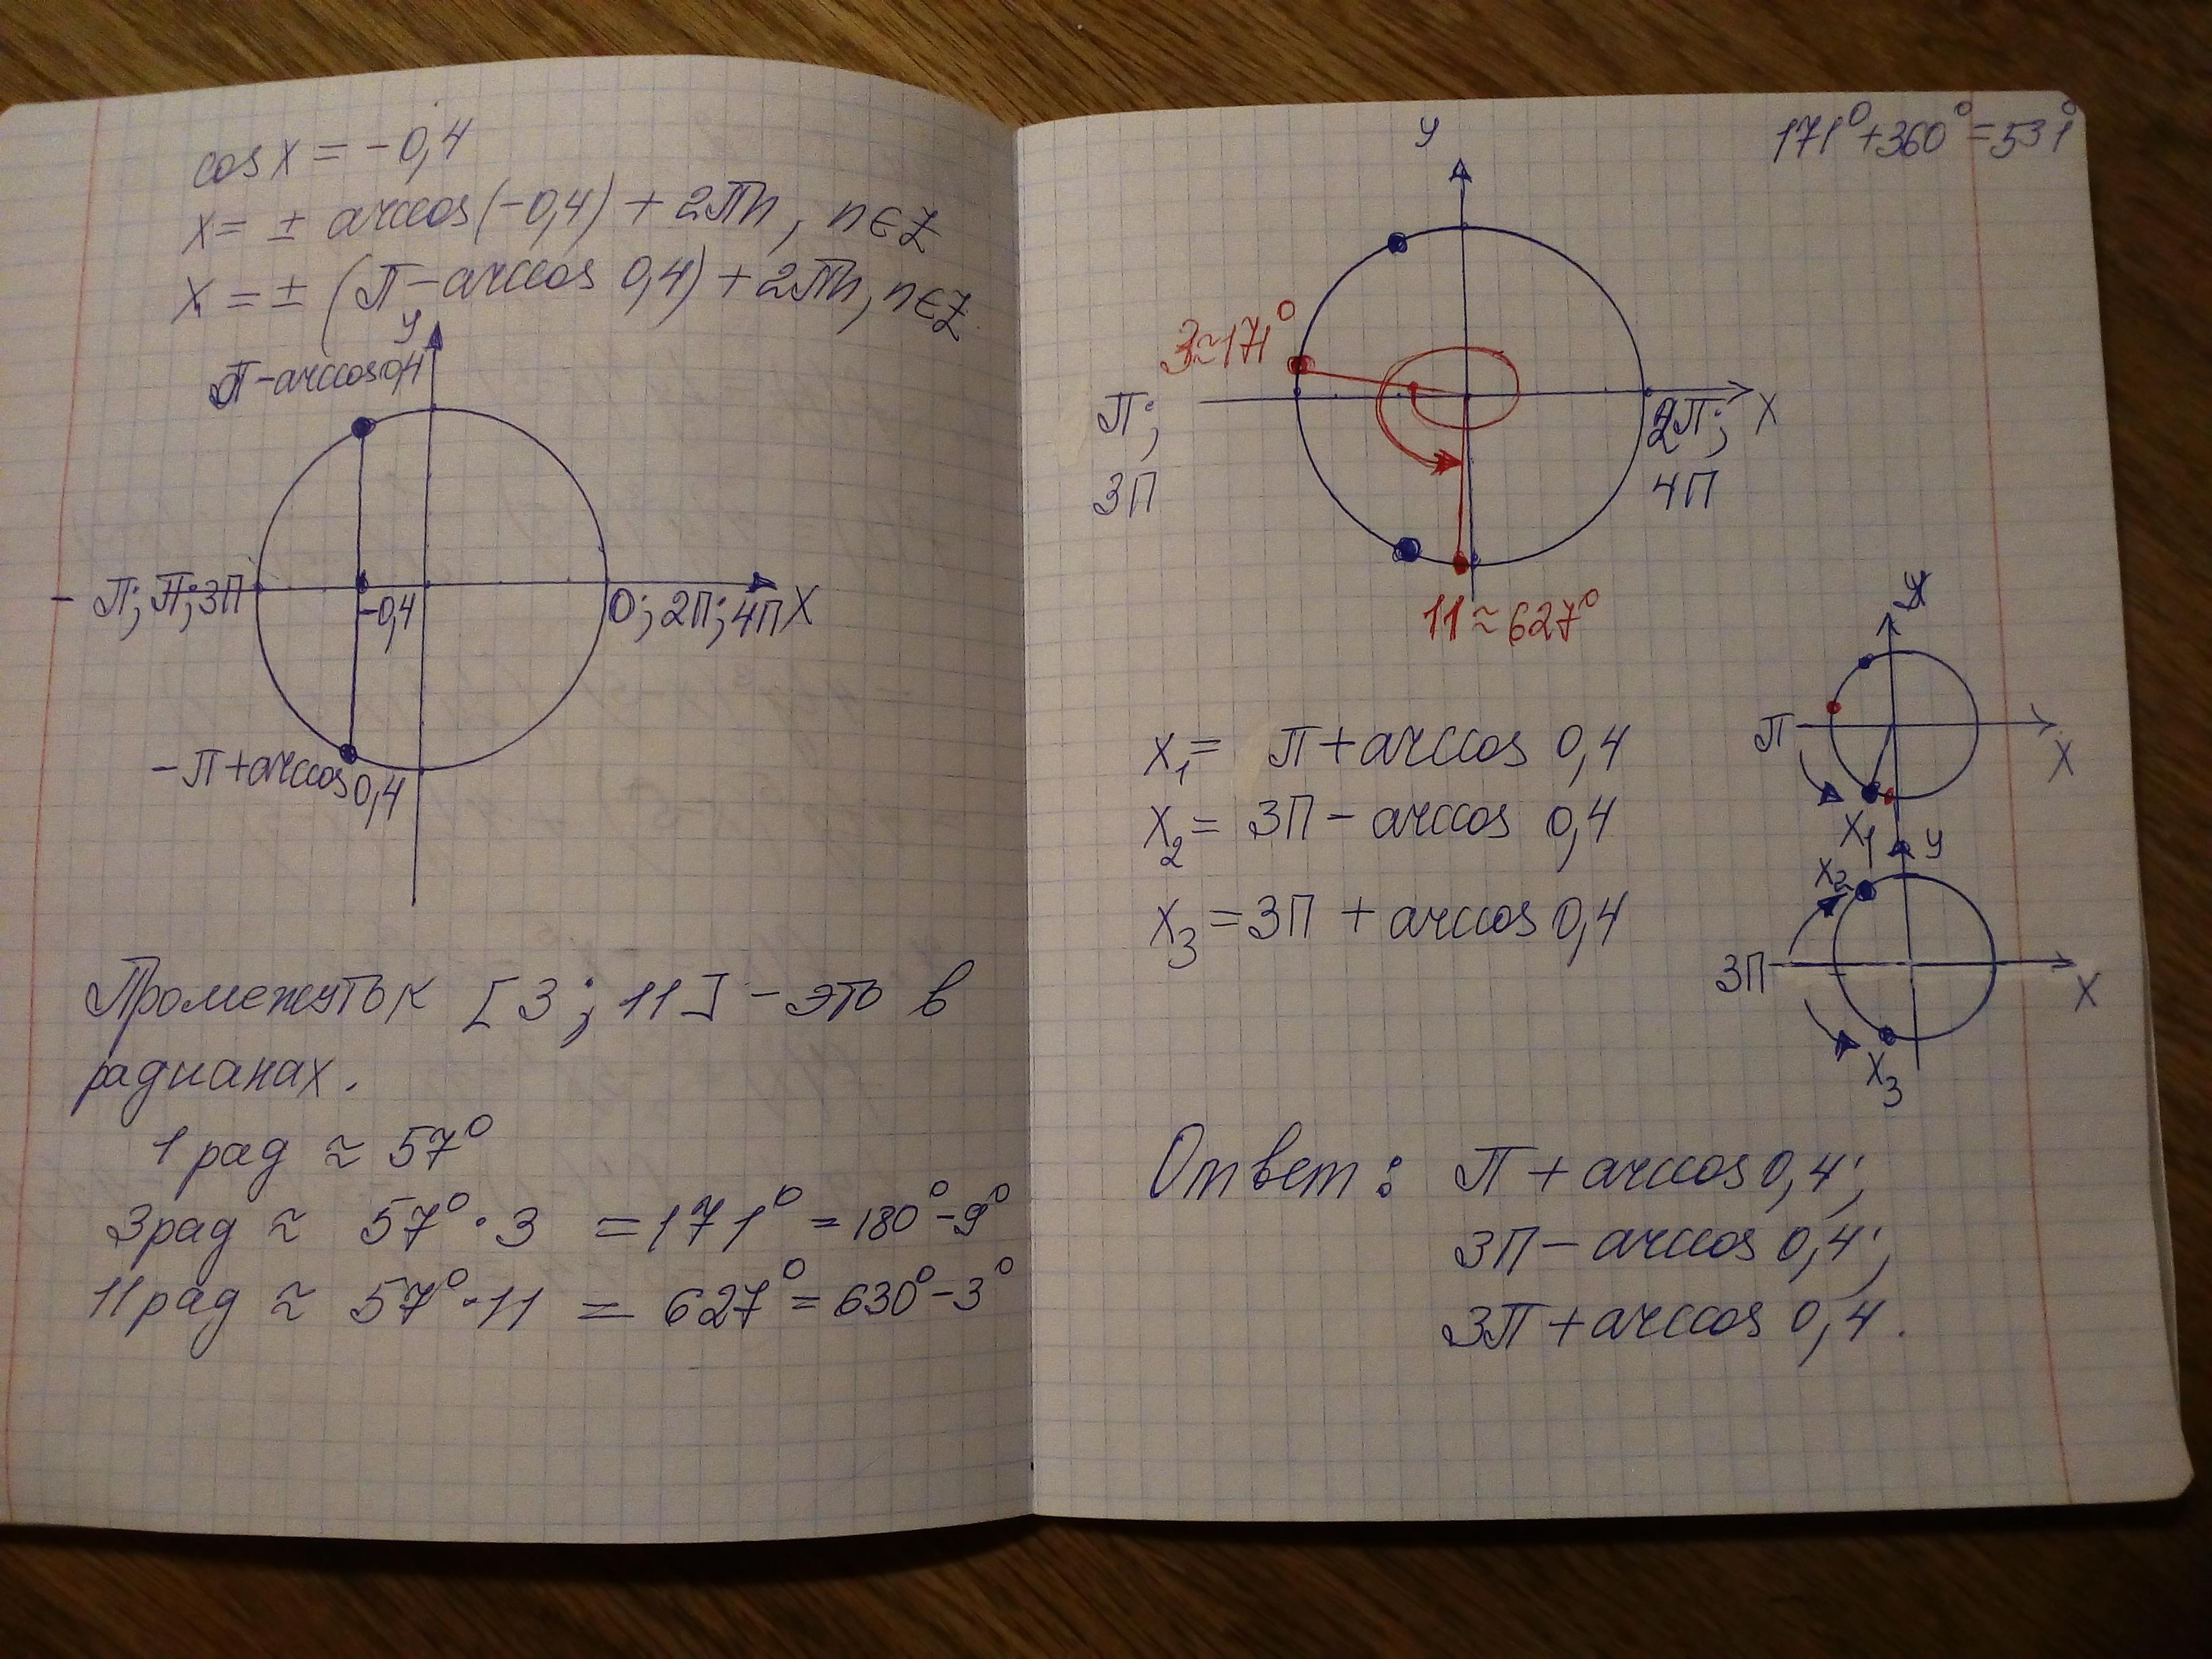 cos x = -0,4
x = ± arccos(-0,4) + 2πn, n∈Z
x = ± (π - arccos 0,4) + 2πn, n∈Z
y
π - arccos 0,4
- π; π; 3π
-0,4
0; 2π; 4π X
- π + arccos 0,4
Промежуток [3; 11] - это в
радианах.
1 рад ≈ 57°
3 рад ≈ 57° · 3 = 171° = 180° - 9°
11 рад ≈ 57° · 11 = 627° = 630° - 3°
171° + 360° = 531°
y
3 ≈ 171°
π;
3π
2π;
4π
X
11 ≈ 627°
x₁ = π + arccos 0,4
x₂ = 3π - arccos 0,4
x₃ = 3π + arccos 0,4
y
π
X
x₁
y
x₂
3π
X
x₃
Ответ: π + arccos 0,4;
3π - arccos 0,4;
3π + arccos 0,4.